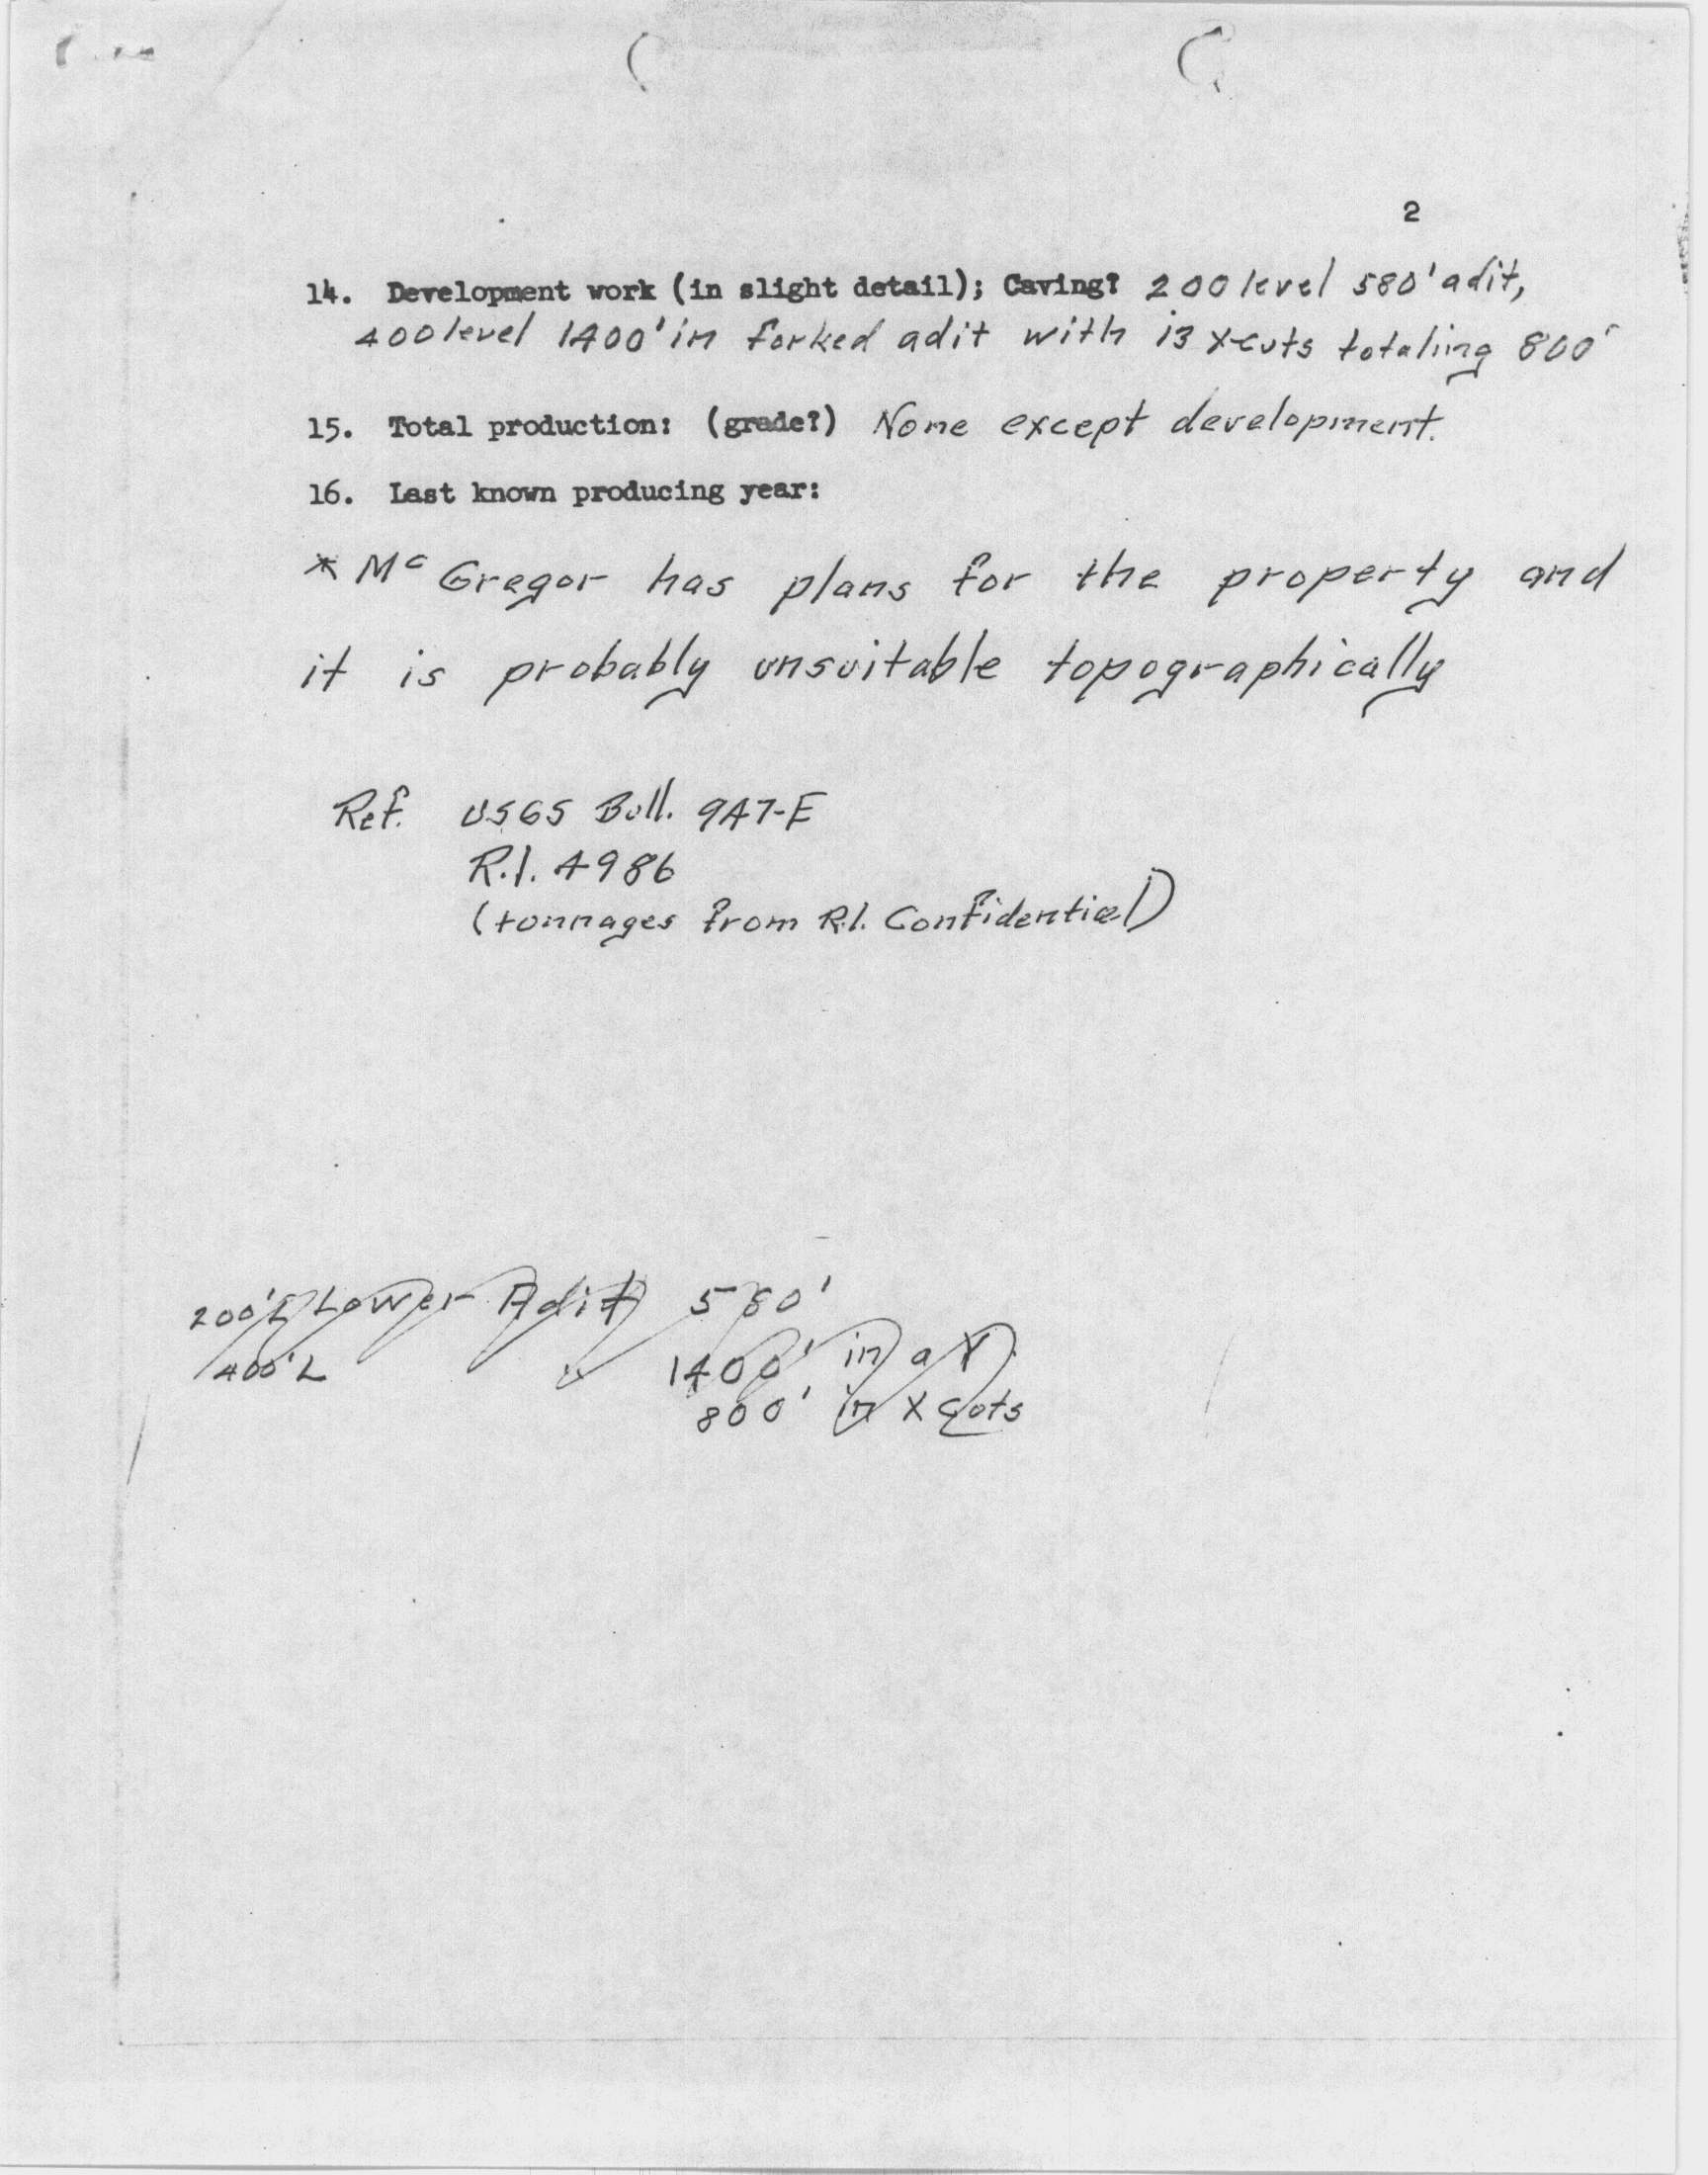 2
14. Development work (in slight detail); Caving? 200 level 580' adit,
400 level 1400' in forked adit with 13 X-cuts totaling 800'
15. Total production: (grade?) None except development.
16. Last known producing year:
* Mc Gregor has plans for the property and
it is probably unsuitable topographically
Ref. USGS Bull. 947-E
R.I. 4986
(tonnages from R.I. Confidential)
200'L Lower Adit 580'
400'L " 1400' in a Y
800' in X cuts